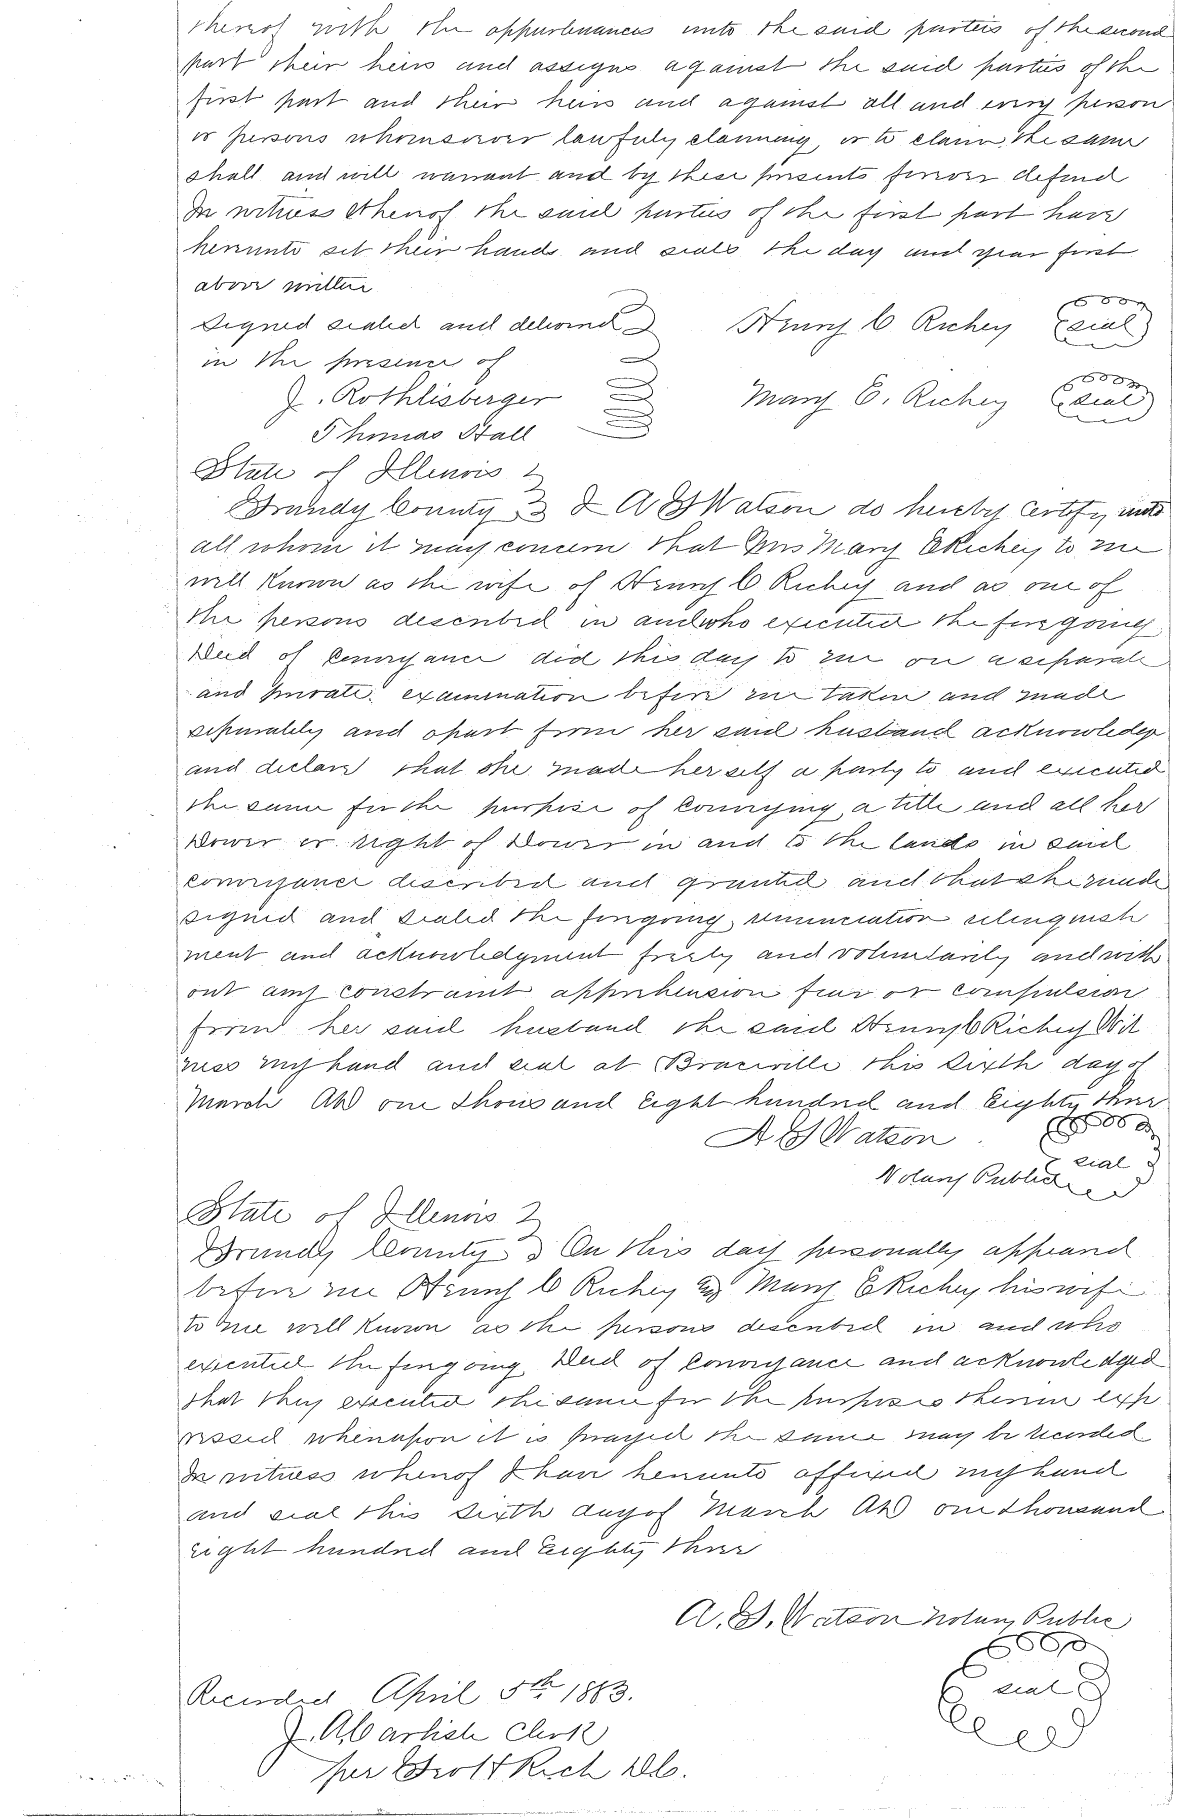 thereof with the appurtenances unto the said parties of the second
part their heirs and assigns against the said parties of the
first part and their heirs and against all and every person
or persons whomsoever lawfuly claiming or to claim the same
shall and will warrant and by these presents forever defend
In witness whereof the said parties of the first part have
hereunto set their hands and seals the day and year first
above written
Signed sealed and delivered Henry C Richey (seal)
in the presence of
J. Rothlisberger Mary E. Richey (seal)
Thomas Hall
State of Illinois
Grundy County I A Watson do hereby certify unto
all whom it may concern that Mrs Mary E Richey to me
well known as the wife of Henry C Richey and as one of
the persons described in and who executed the foregoing
Deed of Conveyance did this day to me on a separate
and private examination before me taken and made
separately and apart from her said husband acknowledge
and declare that she made herself a party to and executed
the same for the purpose of conveying a title and all her
Dower or right of Dower in and to the lands in said
conveyance described and granted and that she made
signed and sealed the foregoing renunciation relinquish
ment and acknowledgment freely and voluntarily and with
out any constraint apprehension fear or compulsion
from her said husband the said Henry C Richey Wit
ness my hand and seal at Braceville this Sixth day of
March AD one thousand Eight hundred and Eighty three
A Watson
seal
Notary Public
State of Illinois
Grundy County On this day personally appeared
before me Henry C Richey and Mary E Richey his wife
to me well known as the persons described in and who
executed the foregoing Deed of Conveyance and acknowledged
that they executed the same for the purposes therein exp
ressed whereupon it is prayed the same may be recorded
In witness whereof I have hereunto affixed my hand
and seal this Sixth day of March AD one thousand
eight hundred and Eighty three
A. Watson Notary Public
seal
Recorded April 5th 1883.
J. A. Carlisle Clerk
per Scott Rich D.C.